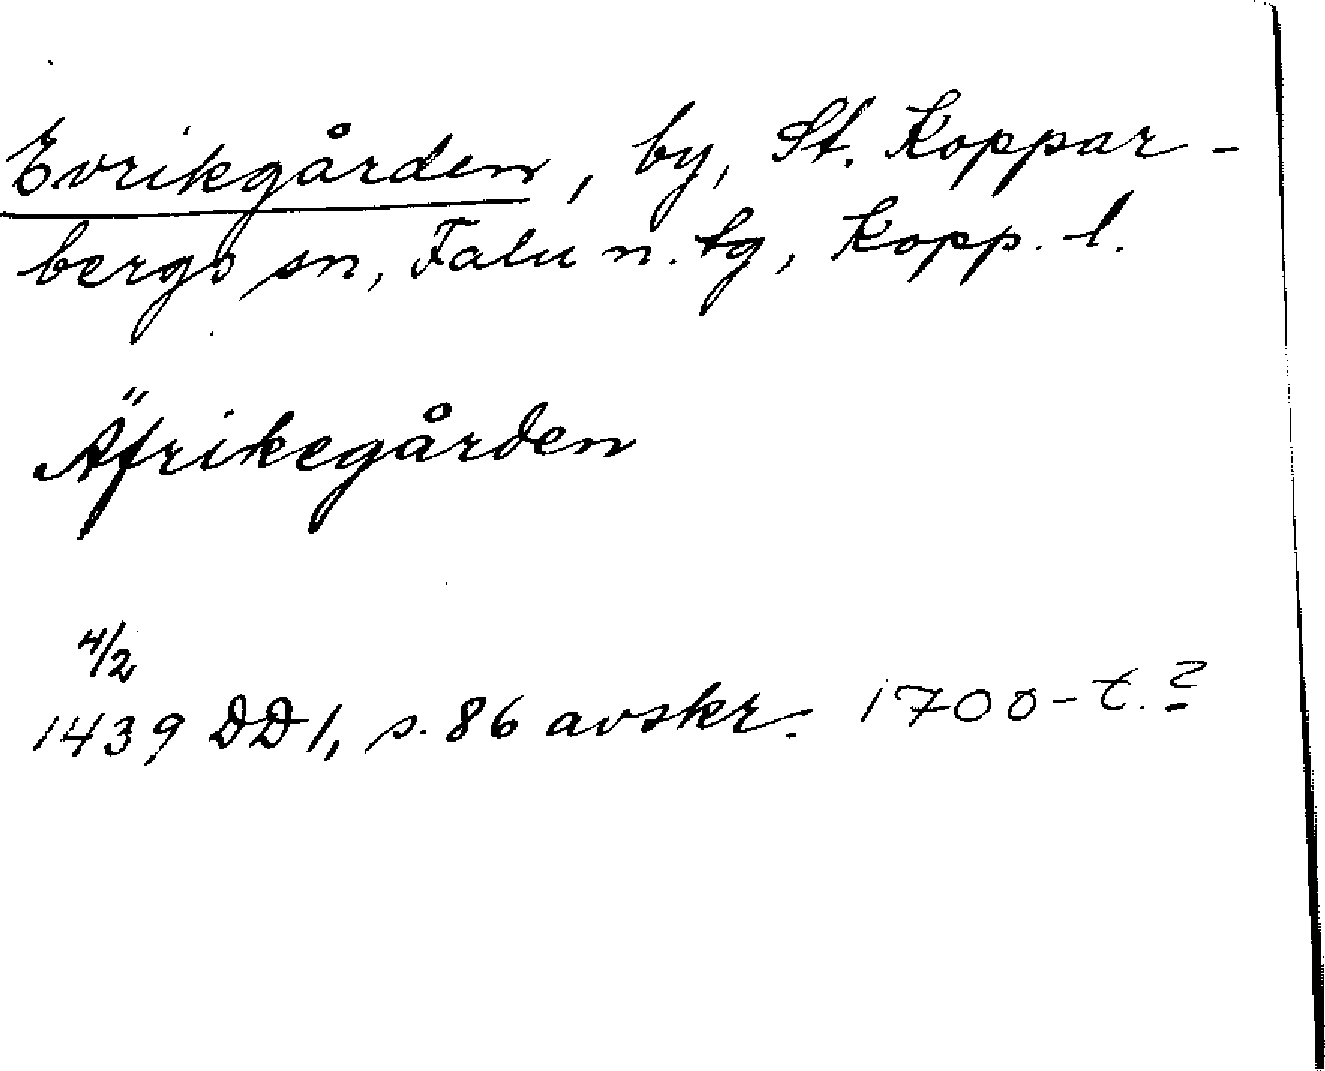 Evrikgården, by, St. Koppar-
bergs sn, Falu n. tg, Kopp. l.
Äfrikegården
4/2
1439 DD 1, s. 86 avskr. 1700-t.?